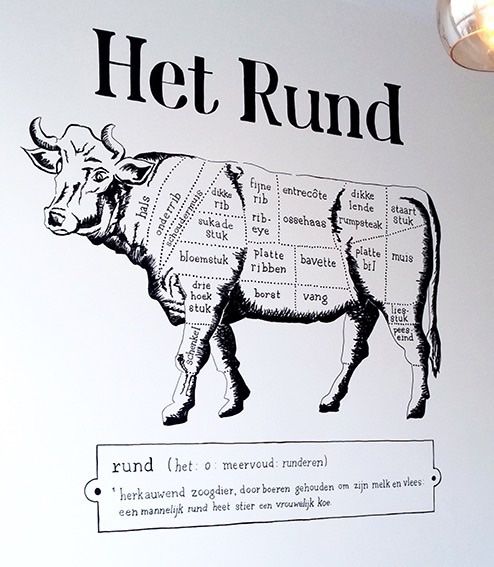 Het Rund
hals
onderrib
schoudermuis
dikke
rib
sukade
stuk
fijne
rib
rib-
eye
entrecôte
ossehaas
dikke
lende
rumpsteak
staart
stuk
bloemstuk
platte
ribben
bavette
platte
bil
muis
drie
hoek
stuk
borst
vang
lies-
stuk
pees-
eind
schenkel
rund (het: o: meervoud: runderen)
1 herkauwend zoogdier, door boeren gehouden om zijn melk en vlees:
een mannelijk rund heet stier een vrouwelijk koe.